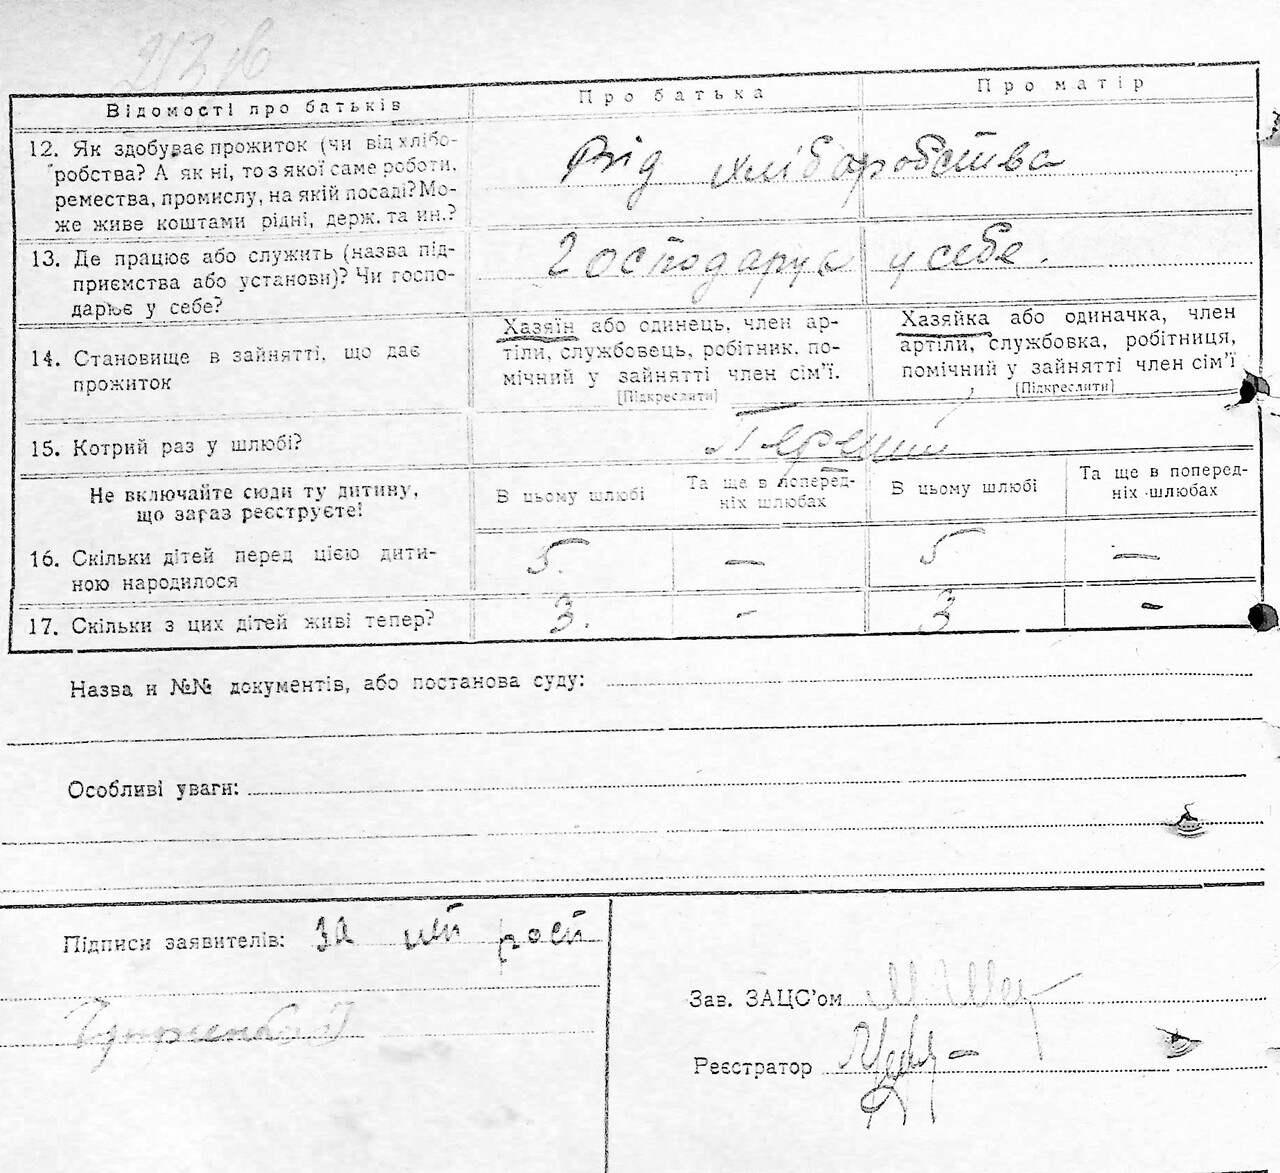 Відомості про батьків
Про батька
Про матір
12. Як здобуває прожиток (чи від хлібо-
робства? А як ні, то з якої саме роботи,
ремества, промислу, на якій посаді? Мо-
же живе коштами рідні, держ. та ин.?
Від хліборобства
13. Де працює або служить (назва під-
приємства або установи)? Чи госпо-
дарює у себе?
Господарує у себе.
14. Становище в зайнятті, що дає
прожиток
Хазяїн або одинець, член ар-
тіли, службовець, робітник, по-
мічний у зайнятті член сім'ї.
[Підкреслити]
Хазяйка або одиначка, член
артіли, службовка, робітниця,
помічний у зайнятті член сім'ї
[Підкреслити]
15. Котрий раз у шлюбі?
Перший
Не включайте сюди ту дитину,
що зараз реєструєте!
В цьому шлюбі
Та ще в поперед-
ніх шлюбах
В цьому шлюбі
Та ще в поперед-
ніх шлюбах
16. Скільки дітей перед цією дити-
ною народилося
5. — 5 —
17. Скільки з цих дітей живі тепер?
3. - 3 -
Назва и №№ документів, або постанова суду:
Особливі уваги:
Підписи заявителів: за
Зав. ЗАЦС'ом
Реєстратор